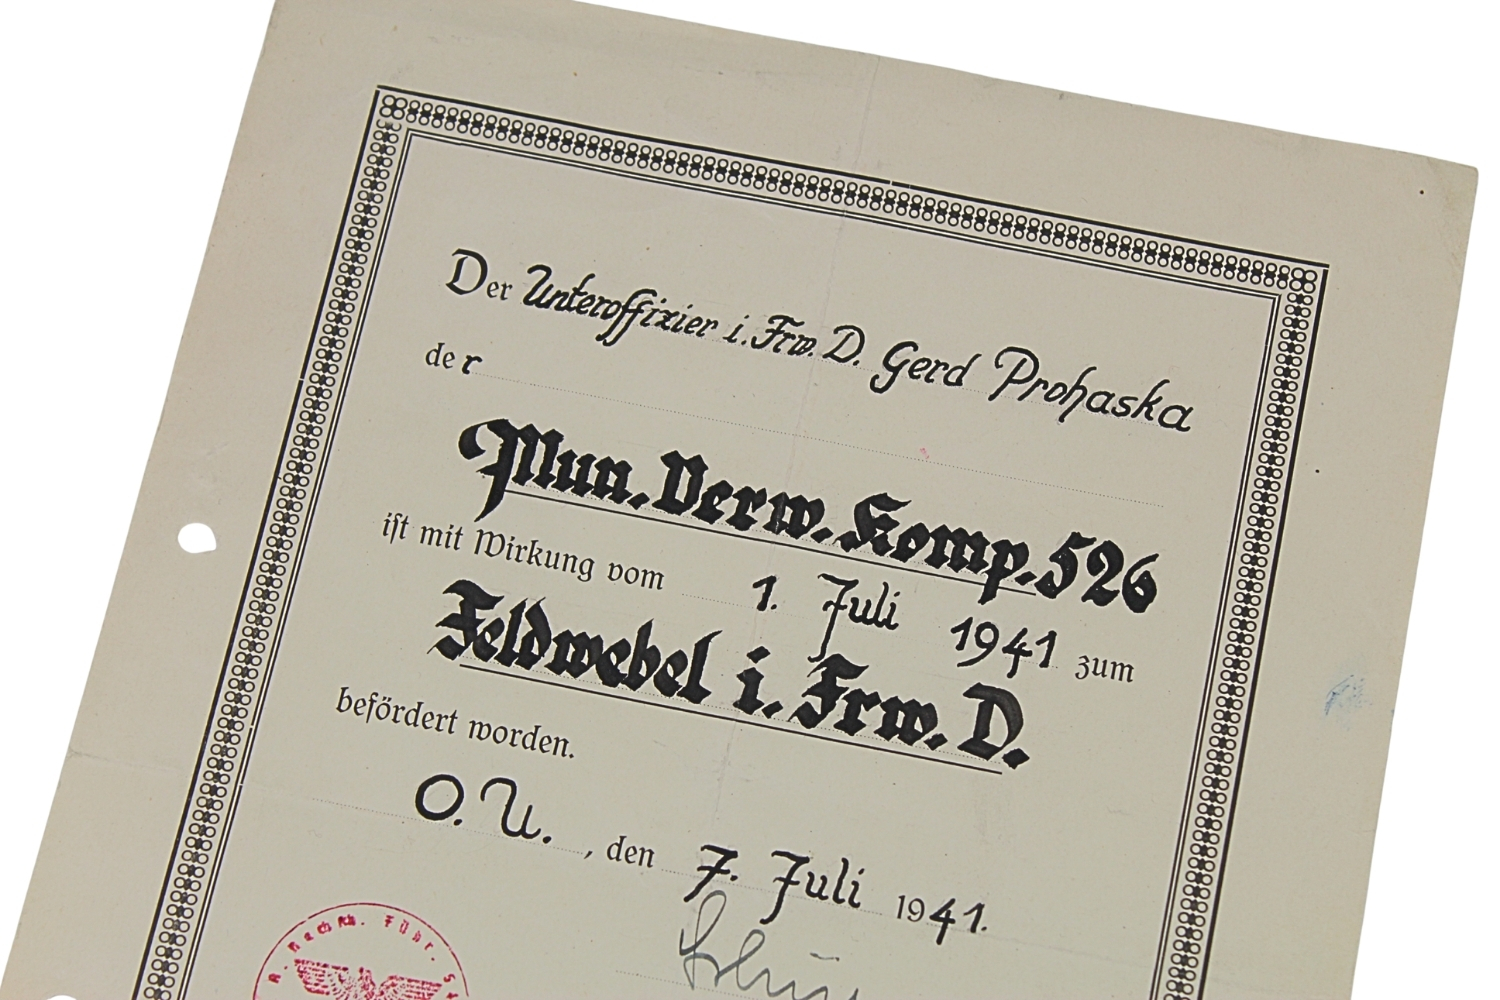 Der Unteroffizier i. Frw. D. Gerd Prohaska
der
Mun. Verw. Komp. 526
ist mit Wirkung vom 1. Juli 1941 zum
Feldwebel i. Frw. D.
befördert worden.
O. U., den 7. Juli 1941.